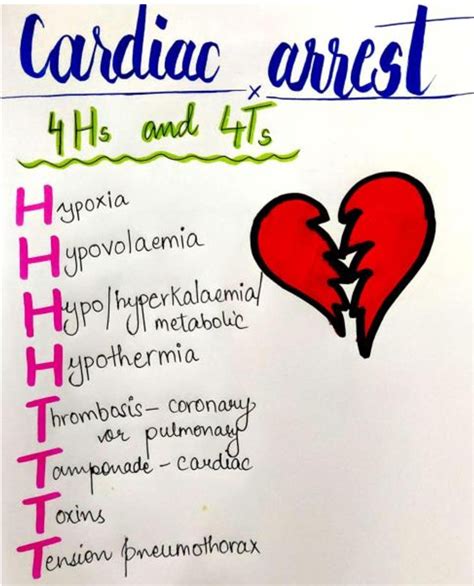 Cardiac arrest
4Hs and 4Ts
Hypoxia
Hypovolaemia
Hypo/hyperkalaemia/
metabolic
Hypothermia
Thrombosis - coronary
or pulmonary
Tamponade - cardiac
Toxins
Tension pneumothorax